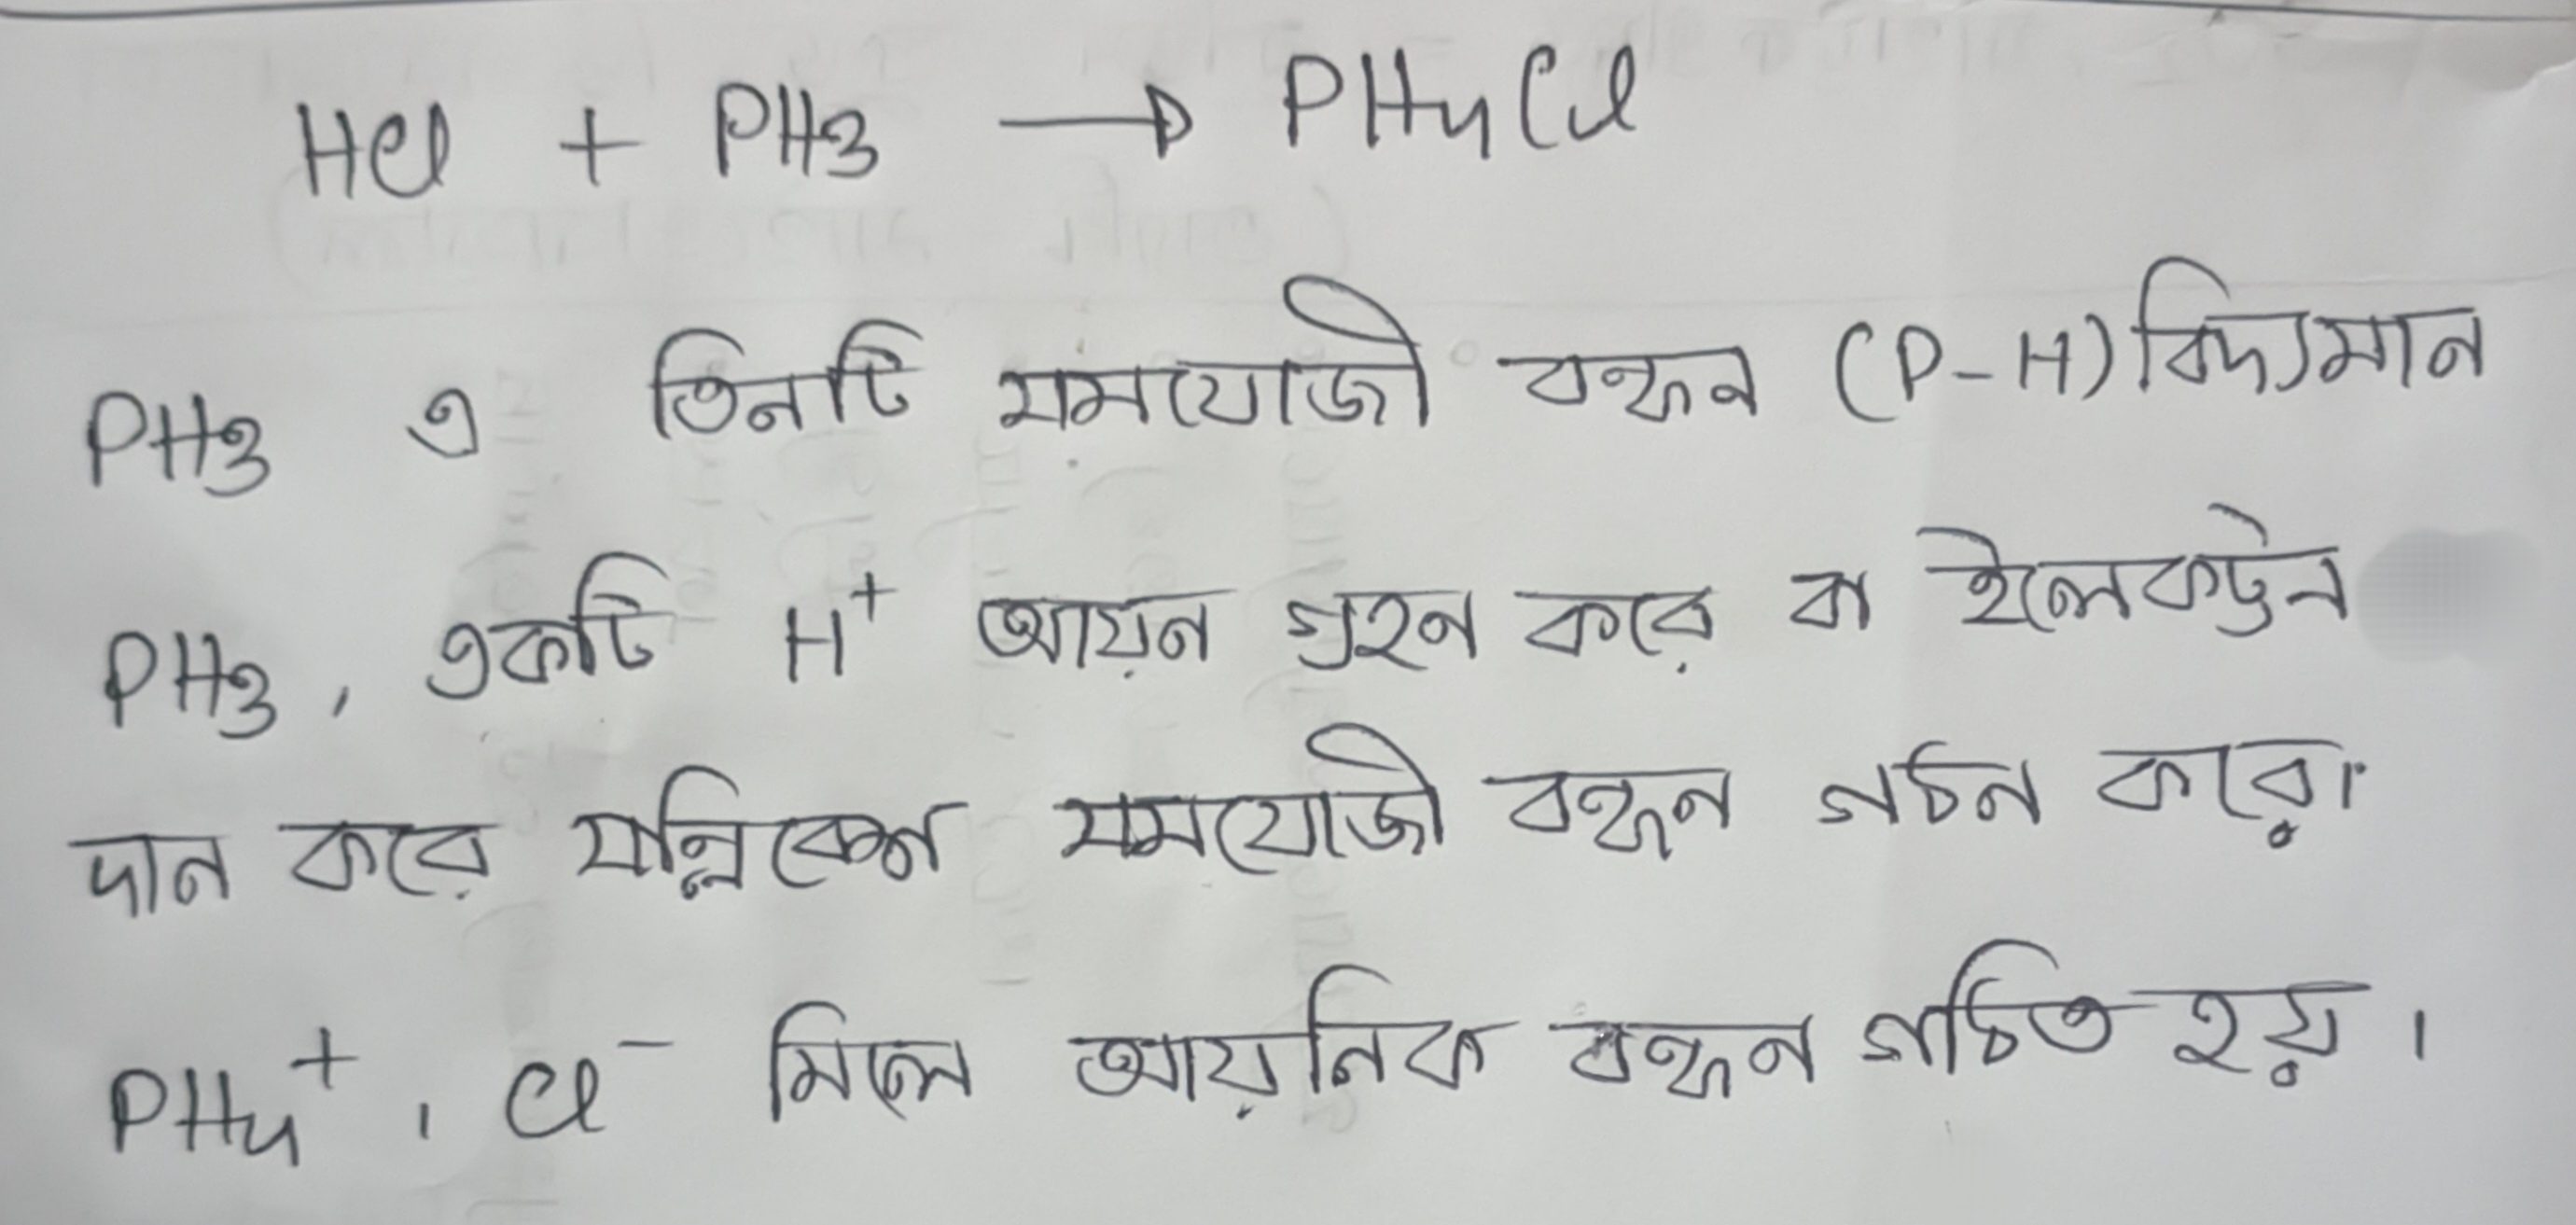 HCl + PH3 → PH4Cl
PH3 এ তিনটি সমযোজী বন্ধন (P-H) বিদ্যমান
PH3, একটি H+ আয়ন গ্রহন করে বা ইলেকট্রন
দান করে সন্নিবেশ সমযোজী বন্ধন গঠন করে।
PH4+, Cl- মিলে আয়নিক বন্ধন গঠিত হয়।